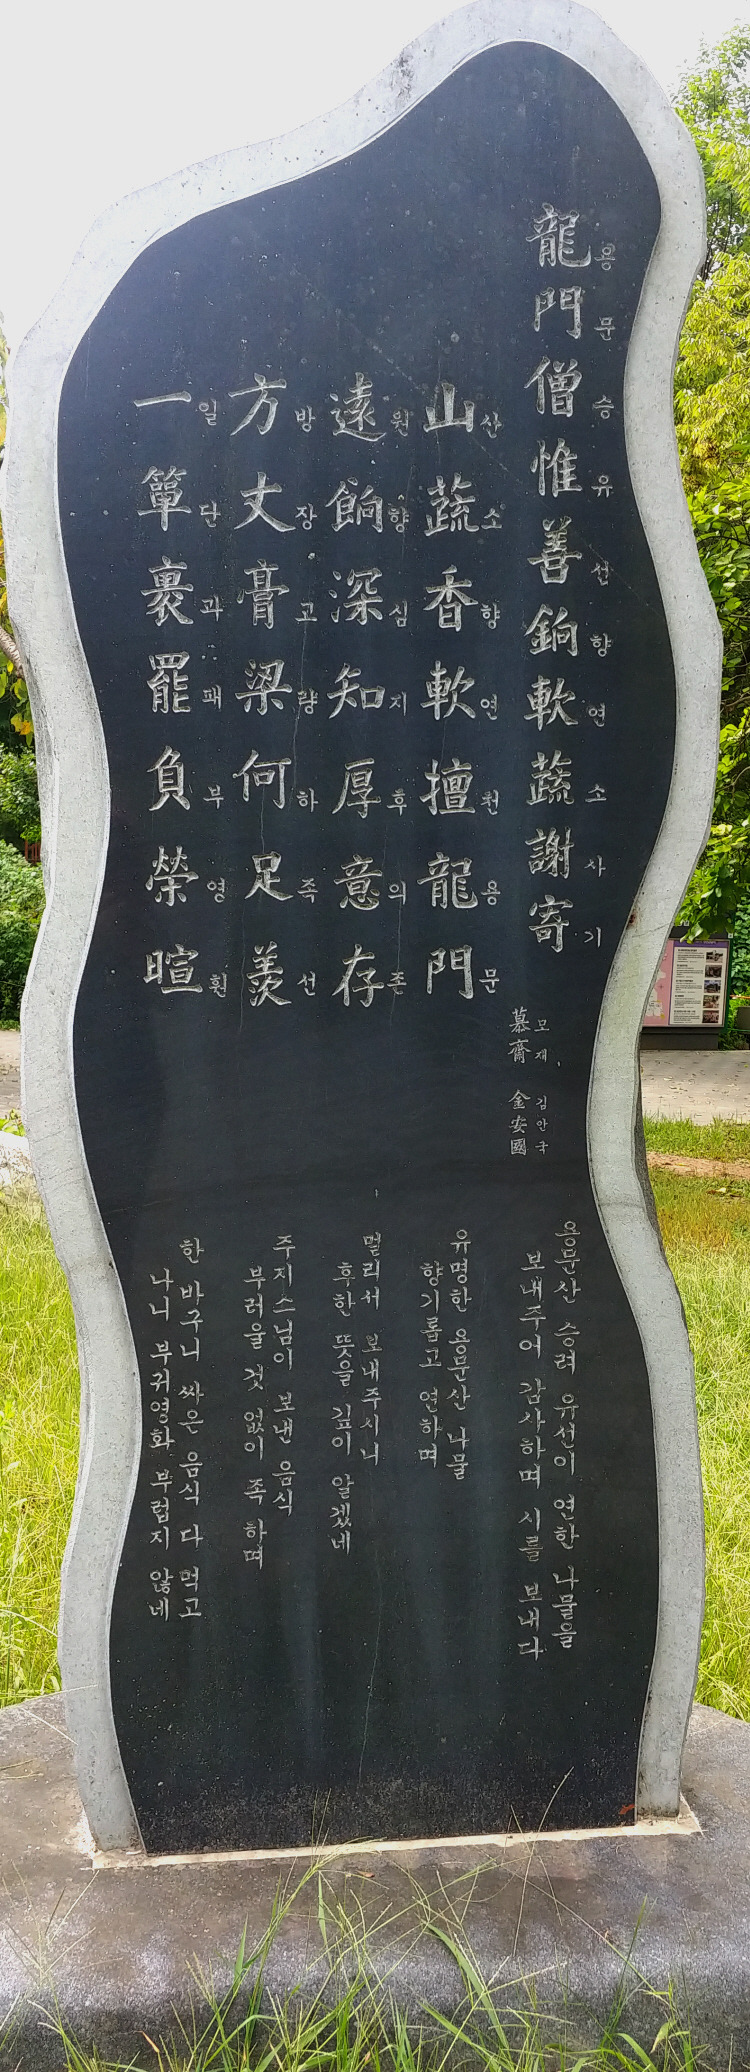 龍門僧惟善餉軟蔬謝寄
용문승유선향연소사기
慕齋 金安國
모재 김안국
山蔬香軟擅龍門
산소향연천용문
遠餉深知厚意存
원향심지후의존
方丈膏粱何足羨
방장고량하족선
一簞裹罷負榮暄
일단과패부영훤
용문산 승려 유선이 연한 나물을
보내주어 감사하며 시를 보내다
유명한 용문산 나물
향기롭고 연하며
멀리서 보내주시니
후한 뜻을 깊이 알겠네
주지스님이 보낸 음식
부러울 것 없이 족하며
한 바구니 싸은 음식 다 먹고
나니 부귀영화 부럽지 않네